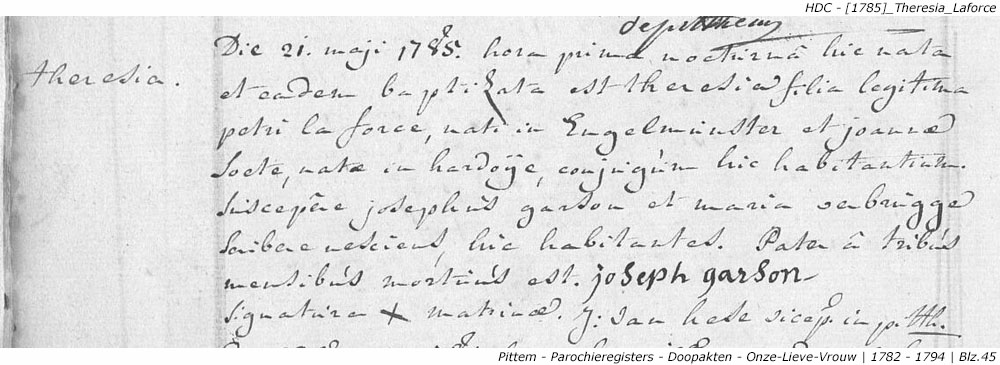 HDC - [1785]_Theresia_Laforce
theresia.
Die 21. maji 1785. hora prima nocturnâ hic nata
et eadem baptizata est theresia filia legitima
petri la force, nati in Engelmunster et joannæ
Socte, natæ in hardoÿe, conjugúm hic habitantium.
Suscepêre josephús garson et maria verbrúgge
scribere nesciens, hic habitantes. Pater â tribús
mensibús mortuús est. joseph garson
signatura + matrinæ. J: van hese vicep: in pitth.
Pittem - Parochieregisters - Doopakten - Onze-Lieve-Vrouw | 1782 - 1794 | Blz.45